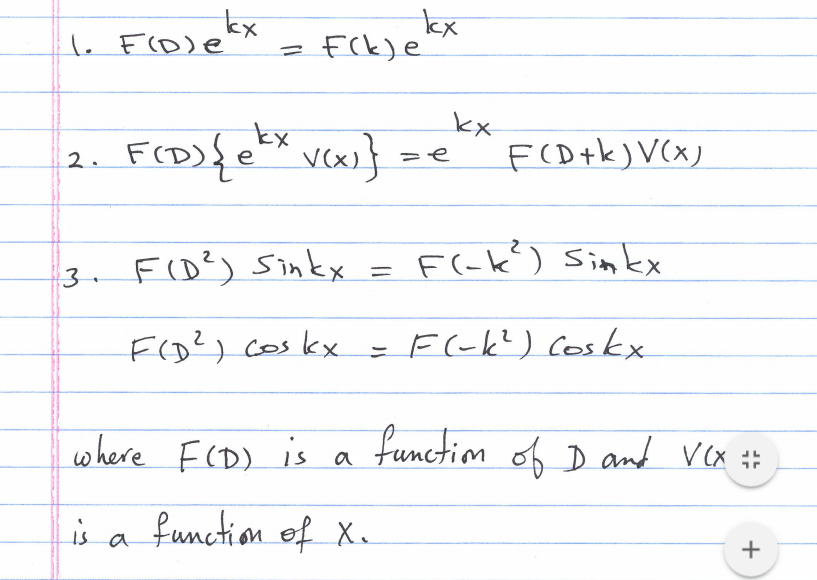 1. F(D)e^{kx} = F(k)e^{kx}
2. F(D){e^{kx} V(x)} = e^{kx} F(D+k)V(x)
3. F(D²) Sinkx = F(-k²) Sinkx
F(D²) cos kx = F(-k²) Coskx
where F(D) is a function of D and V(x
is a function of x.